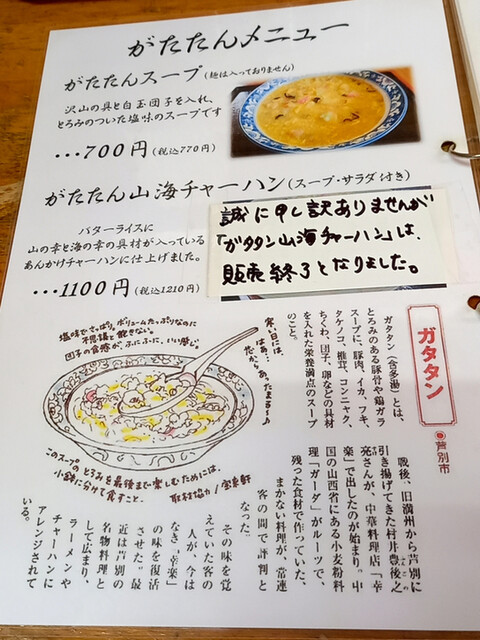 がたたんメニュー
がたたんスープ(麺は入っておりません)
沢山の具と白玉団子を入れ、
とろみのついた塩味のスープです
・・・700円(税込770円)
がたたん山海チャーハン(スープ・サラダ付き)
バターライスに
山の幸と海の幸の具材が入っている
あんかけチャーハンに仕上げました。
・・・1100円(税込1210円)
誠に申し訳ありませんが
「ガタタン山海チャーハン」は、
販売終了となりました。
塩味でさっぱり。ボリュームたっぷりなのに
不思議と飽きない。
団子の食感が、ふにふに、いい感じ。
寒い日は、
はぁ〜、あったまる〜♪
芯から
このスープのとろみを最後まで楽しむためには、
小鉢に分けて食すこと。
取材協力/宝来軒
ガタタン
芦別市
ガタタン(含多湯)とは、
とろみのある豚骨や鶏ガラ
スープに、豚肉、イカ、フキ、
タケノコ、椎茸、コンニャク、
ちくわ、団子、卵などの具材
を入れた栄養満点のスープ
のこと。
戦後、旧満州から芦別に
引き揚げてきた村井豊後之
亮さんが、中華料理店「幸
楽」で出したのが始まり。中
国の山西省にある小麦粉料
理「ガーダ」がルーツで、
残った食材で作っていた、
まかない料理が、常連
客の間で評判と
なった。
その味を覚
えていた客の
人が、今は
なき「幸楽」
の味を復活
させた。最
近は芦別の
名物料理と
して広まり、
ラーメンや
チャーハンに
アレンジされて
いる。